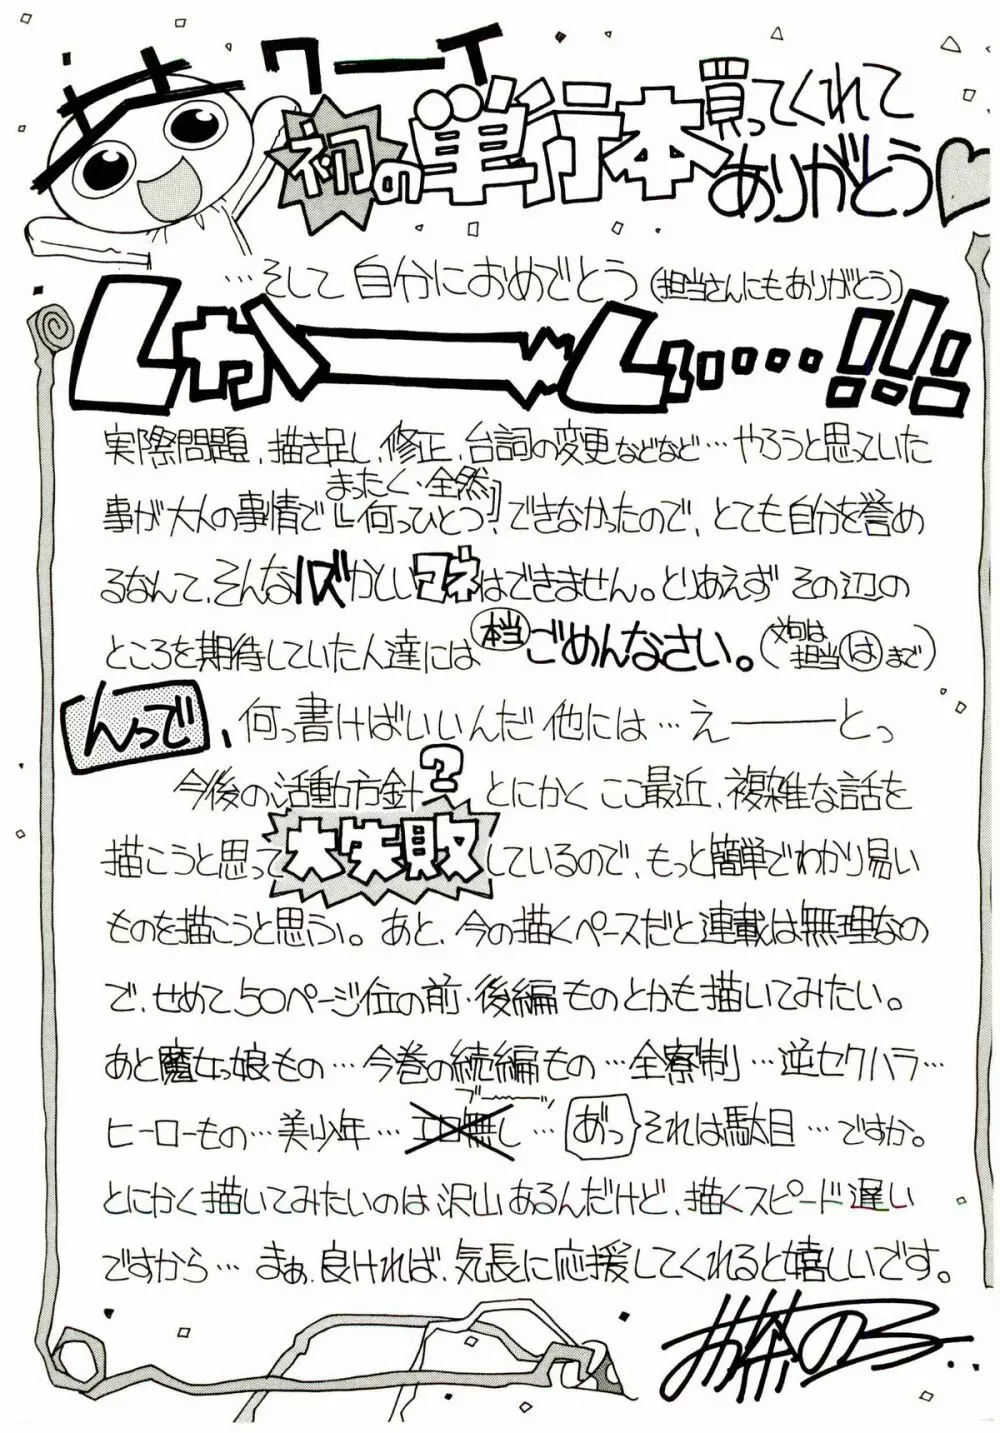 ワーイ
初の単行本買ってくれて
ありがとう
…そして自分におめでとう(担当さんにもありがとう)
しかーーしぃ…!!!
実際問題、描き足し、修正、台詞の変更などなど…やろうと思っていた
まったく・全然
事が大人の事情で『何っひとつ!』できなかったので、とても自分を誉め
るなんて、そんなハズかしいマネはできません。とりあえずその辺の
ところを期待していた人達には本当ごめんなさい。(文句は担当(は)まで)
んっで、何っ書けばいいんだ他には…えーーーとっ
今後の活動方針?とにかくここ最近、複雑な話を
描こうと思って大失敗しているので、もっと簡単でわかり易い
ものを描こうと思うっ。あと、今の描くペースだと連載は無理なの
で、せめて50ページ位の前・後編ものとかも描いてみたい。
あと魔女っ娘もの…今巻の続編もの…全寮制…逆セクハラ…
ブーーーッ
ヒーローもの…美少年…エロ無し…あ゛っそれは駄目…ですか。
とにかく描いてみたいのは沢山あるんだけど、描くスピード遅い
ですから…まぁ、良ければ、気長に応援してくれると嬉しいです。
お茶のころ…